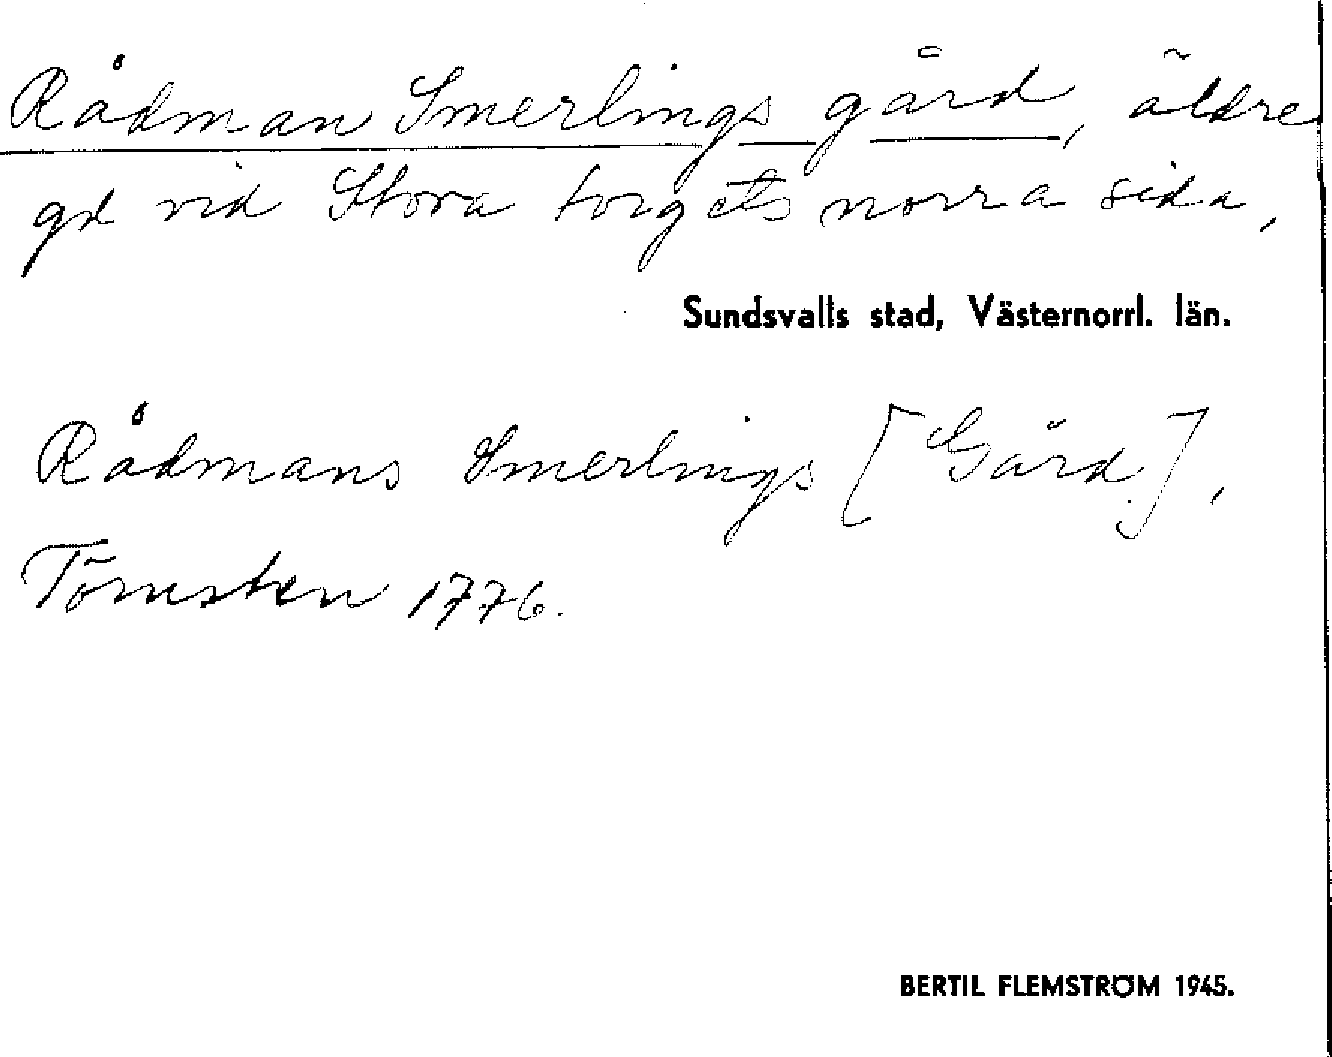 Rådman Smerlings gård, äldre
gd vid Stora torgets norra sida,
Sundsvalls stad, Västernorrl. län.
Rådmans Smerlings [Gård],
Törnsten 1776.
BERTIL FLEMSTRÖM 1945.